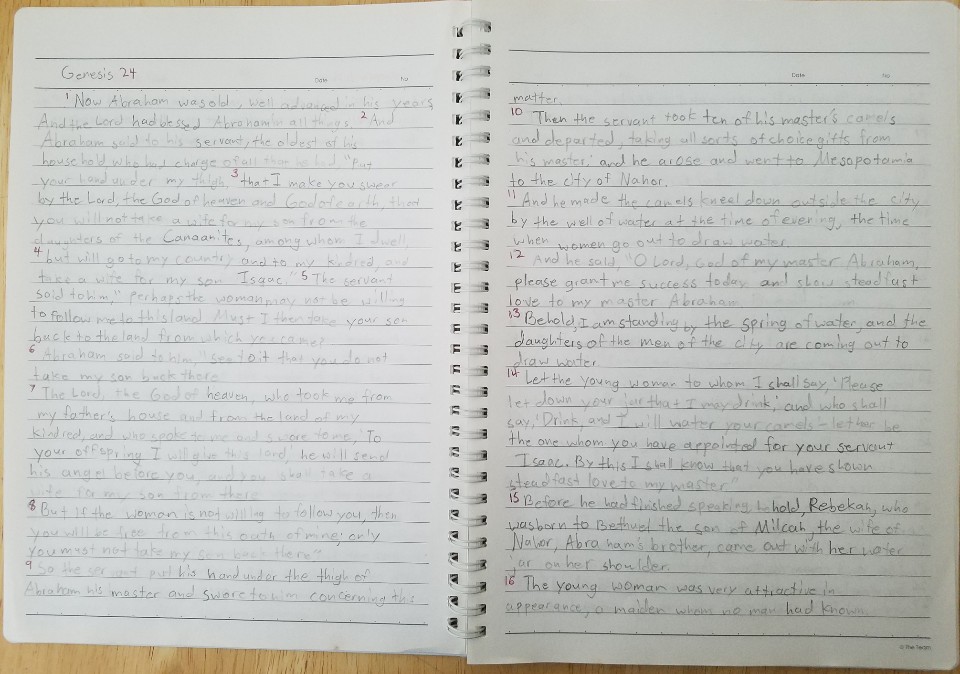 Genesis 24
Date No
1 Now Abraham was old, well advanced in his years
And the Lord had blessed Abraham in all things. 2 And
Abraham said to his servant, the oldest of his
household who had charge of all that he had, "Put
your hand under my thigh, 3 that I make you swear
by the Lord, the God of heaven and God of earth, that
you will not take a wife for my son from the
daughters of the Canaanites, among whom I dwell,
4 but will go to my country and to my kindred, and
take a wife for my son Isaac." 5 The servant
said to him, "perhaps the woman may not be willing
to follow me to this land Must I then take your son
back to the land from which you came?
6 Abraham said to him, "see to it that you do not
take my son back there
7 The Lord, the God of heaven, who took me from
my father's house and from the land of my
kindred, and who spoke to me and swore to me, 'To
your offspring I will give this land', he will send
his angel before you, and you shall take a
wife for my son from there
8 But if the woman is not willing to follow you, then
you will be free from this oath of mine; only
you must not take my son back there"
9 So the servant put his hand under the thigh of
Abraham his master and swore to him concerning this
Date No
matter.
10 Then the servant took ten of his master's camels
and departed, taking all sorts of choice gifts from
his master; and he arose and went to Mesopotamia
to the city of Nahor.
11 And he made the camels kneel down outside the city
by the well of water at the time of evening, the time
when women go out to draw water.
12 And he said, "O Lord, God of my master Abraham,
please grant me success today and show steadfast
love to my master Abraham
13 Behold, I am standing by the spring of water, and the
daughters of the men of the city are coming out to
draw water
14 Let the young woman to whom I shall say, 'Please
let down your jar that I may drink', and who shall
say, 'Drink, and I will water your camels'- let her be
the one whom you have appointed for your servant
Isaac. By this I shall know that you have shown
steadfast love to my master."
15 Before he had finished speaking, behold, Rebekah, who
was born to Bethuel the son of Milcah, the wife of
Nahor, Abraham's brother, came out with her water
jar on her shoulder.
16 The young woman was very attractive in
appearance, a maiden whom no man had known.
© the Team